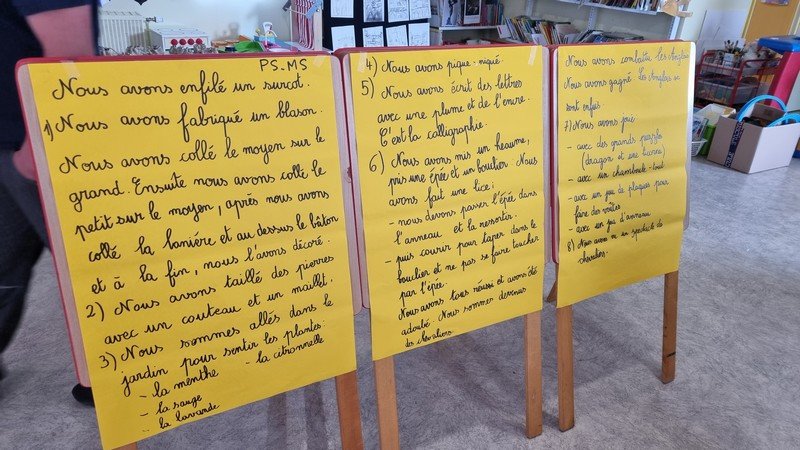 PS-MS
Nous avons enfilé un surcot.
1) Nous avons fabriqué un blason.
Nous avons collé le moyen sur le
grand. Ensuite nous avons collé le
petit sur le moyen, après nous avons
collé la lanière et au dessus le bâton
et à la fin, nous l'avons décoré.
2) Nous avons taillé des pierres
avec un couteau et un maillet.
3) Nous sommes allés dans le
jardin pour sentir les plantes:
- la menthe - la citronnelle
- la sauge
- la lavande
4) Nous avons pique-niqué.
5) Nous avons écrit des lettres
avec une plume et de l'encre.
C'est la calligraphie.
6) Nous avons mis un heaume,
pris une épée et un bouclier. Nous
avons fait une lice:
- nous devons passer l'épée dans
l'anneau et la ressortir.
- puis courir pour taper dans le
bouclier et ne pas se faire toucher
par l'épée.
Nous avons tous réussi et avons été
adoubé. Nous sommes devenus
des chevaliers.
Nous avons combattu les Anglais
Nous avons gagné. Les Anglais se
sont enfuis.
7) Nous avons joué
- avec des grands puzzles
(dragon et une licorne)
- avec un chamboule-tout
- avec un jeu de plaques pour
faire des voûtes
- avec un jeu d'anneaux
8) Nous avons vu un spectacle de
chevaliers.